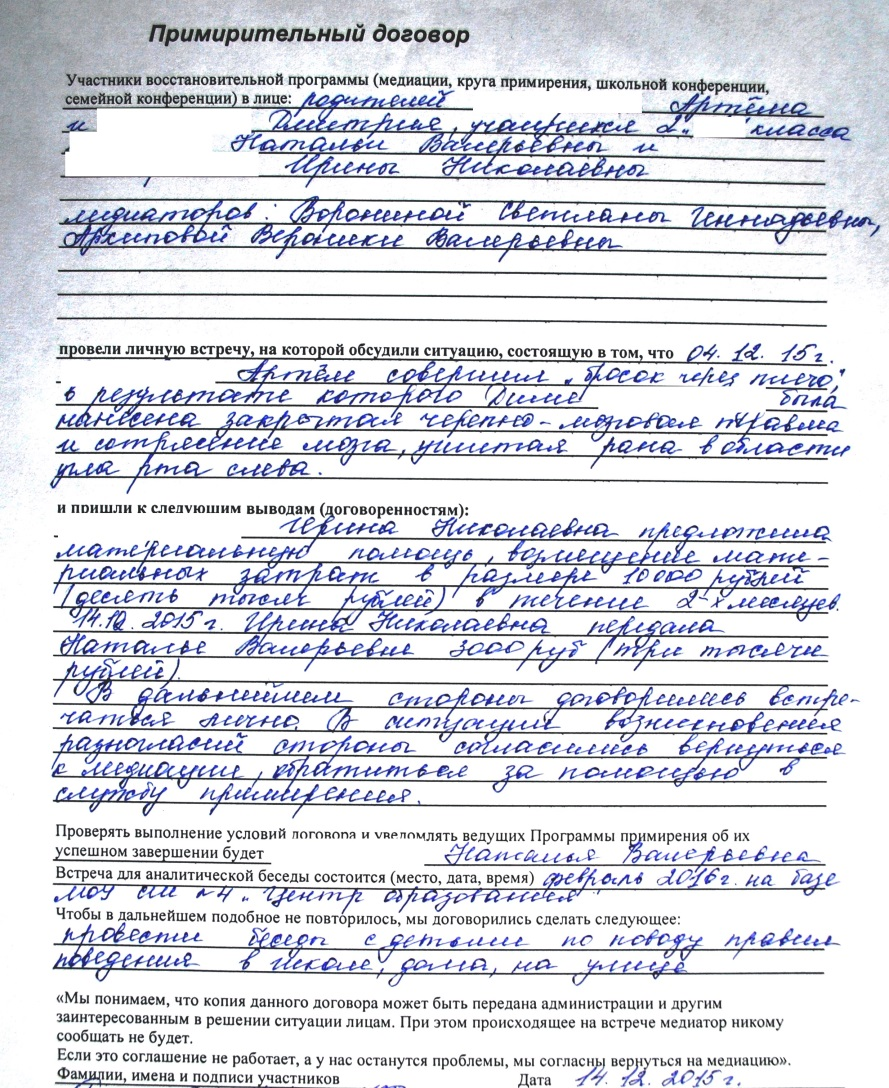 Примирительный договор
Участники восстановительной программы (медиации, круга примирения, школьной конференции,
семейной конференции) в лице: родителей Артёма
и Дмитрия, учащихся 2" класса
Натальи Валерьевны и
Ирины Николаевны
медиаторов: Ворониной Светланы Геннадьевны,
Архиповой Вероники Валерьевны
провели личную встречу, на которой обсудили ситуацию, состоящую в том, что 04.12.15г.
Артём совершил "бросок через плечо",
в результате которого Диме была
нанесена закрытая черепно-мозговая травма
и сотрясение мозга, ушитая рана в области
угла рта слева.
и пришли к следующим выводам (договоренностям):
Ирина Николаевна предложила
материальную помощь, возмещение мате-
риальных затрат в размере 10000 рублей
(десять тысяч рублей) в течение 2-х месяцев.
14.12.2015г. Ирина Николаевна передала
Наталье Валерьевне 3000 руб (три тысячи
рублей).
В дальнейшем стороны договорились встре-
чаться лично. В ситуации возникновения
разногласий стороны согласились вернуться
к медиации, обратиться за помощью в
службу примирения.
Проверять выполнение условий договора и уведомлять ведущих Программы примирения об их
успешном завершении будет Наталья Валерьевна
Встреча для аналитической беседы состоится (место, дата, время) февраль 2016г. на базе
МОУ СШ №4 "Центр образования"
Чтобы в дальнейшем подобное не повторилось, мы договорились сделать следующее:
провести беседы с детьми по поводу правил
поведения в школе, дома, на улице
«Мы понимаем, что копия данного договора может быть передана администрации и другим
заинтересованным в решении ситуации лицам. При этом происходящее на встрече медиатор никому
сообщать не будет.
Если это соглашение не работает, а у нас останутся проблемы, мы согласны вернуться на медиацию».
Фамилии, имена и подписи участников Дата 14.12.2015г.